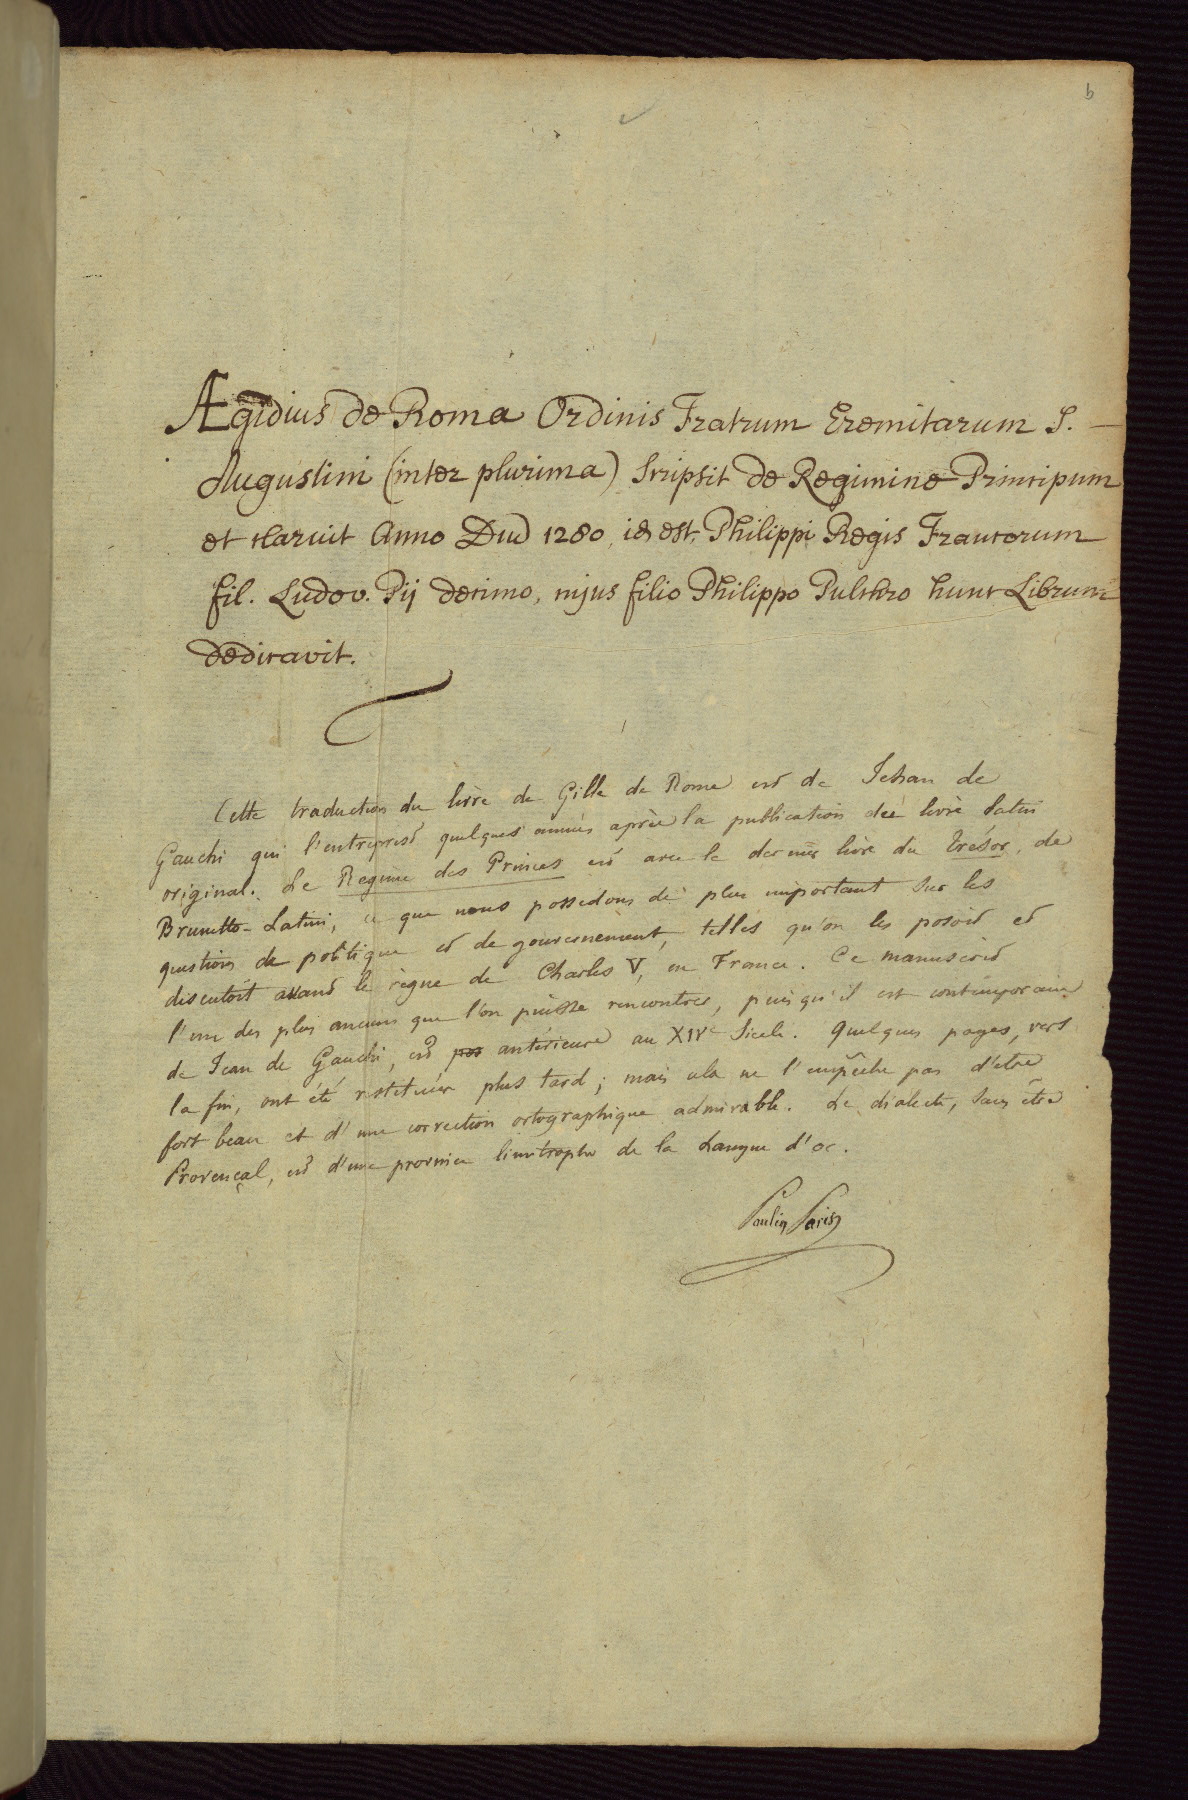 b
Ægidius de Roma Ordinis Fratrum Eremitarum S. —
Augustini (inter plurima) Scripsit de Regimine Principum
et claruit Anno Dni 1280, id est. Philippi Regis Francorum
fil. Ludov. Pij decimo, cujus filio Philippo Pulchro hunc Librum
dedicavit.
Cette traduction du livre de Gille de Rome est de Jehan de
Gauchi qui l'entreprist quelques années après la publication du livre latin
original. Le Regime des Princes est avec le dernier livre du Trésor, de
Brunetto-Latini, ce que nous possedons de plus important sur les
questions de politique et de gouvernement, telles qu'on les posoit et
discutoit avant le règne de Charles V, en France. Ce manuscrit
l'un des plus anciens que l'on puisse rencontrer, puis qu'il est contemporain
de Jean de Gauchi, est antérieure au XIVe Siecle. Quelques pages, vers
la fin, ont été restituées plus tard; mais cela ne l'empêche pas d'etre
fort beau et d'une correction ortographique admirable. Le dialecte, sans être
Provençal, est d'une province limitrophe de la Langue d'oc.
Paulin Paris